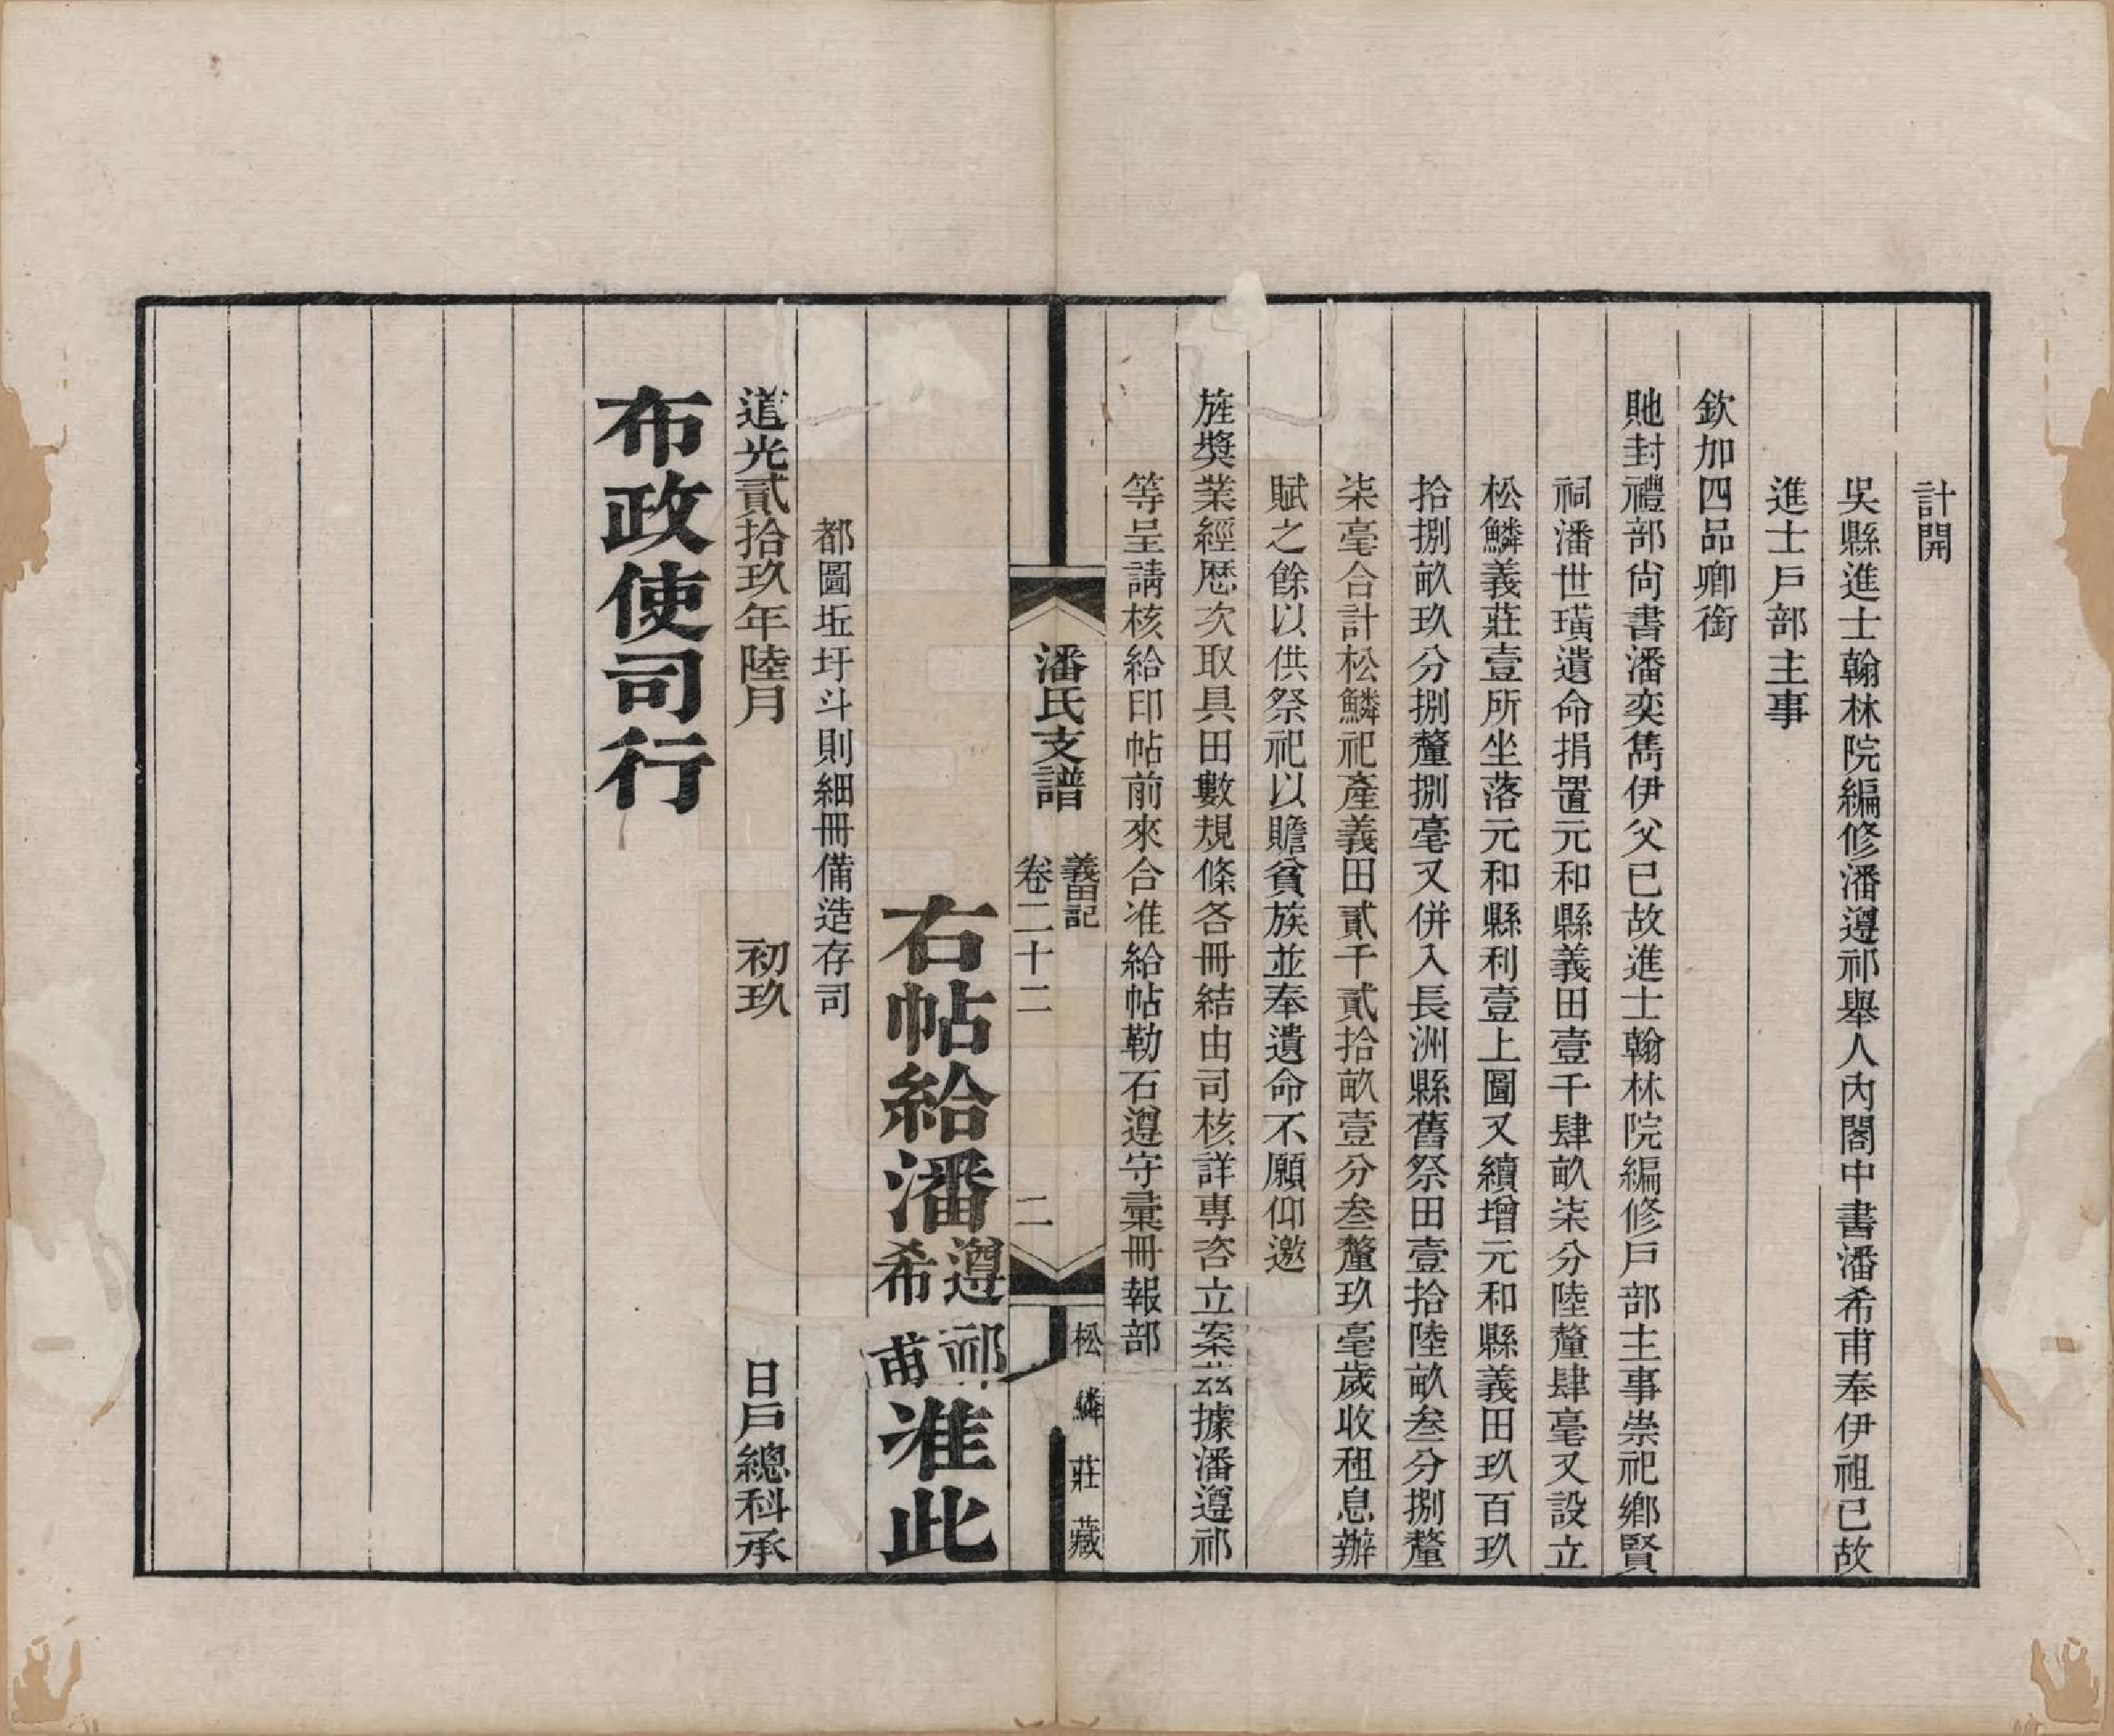 計開
吳縣進士翰林院編修潘遵祁舉人內閣中書潘希甫奉伊祖已故
進士戶部主事
欽加四品卿銜
貤封禮部尚書潘奕雋伊父已故進士翰林院編修戶部主事崇祀鄉賢
祠潘世璜遺命捐置元和縣義田壹千肆畝柒分陸釐肆毫又設立
松鱗義莊壹所坐落元和縣利壹上圖又續增元和縣義田玖百玖
拾捌畝玖分捌釐捌毫又併入長洲縣舊祭田壹拾陸畝叁分捌釐
柒毫合計松鱗祀產義田貳千貳拾畝壹分叁釐玖毫歲收租息辦
賦之餘以供祭祀以贍貧族並奉遺命不願仰邀
旌獎業經歷次取具田數規條各冊結由司核詳專咨立案茲據潘遵祁
等呈請核給印帖前來合准給帖勒石遵守彙冊報部
潘氏支譜
義田記
卷二十二
二
松鱗莊藏
右帖給潘遵祁希甫准此
都圖坵圩斗則細冊備造存司
道光貳拾玖年陸月 初玖 日戶總科承
布政使司行